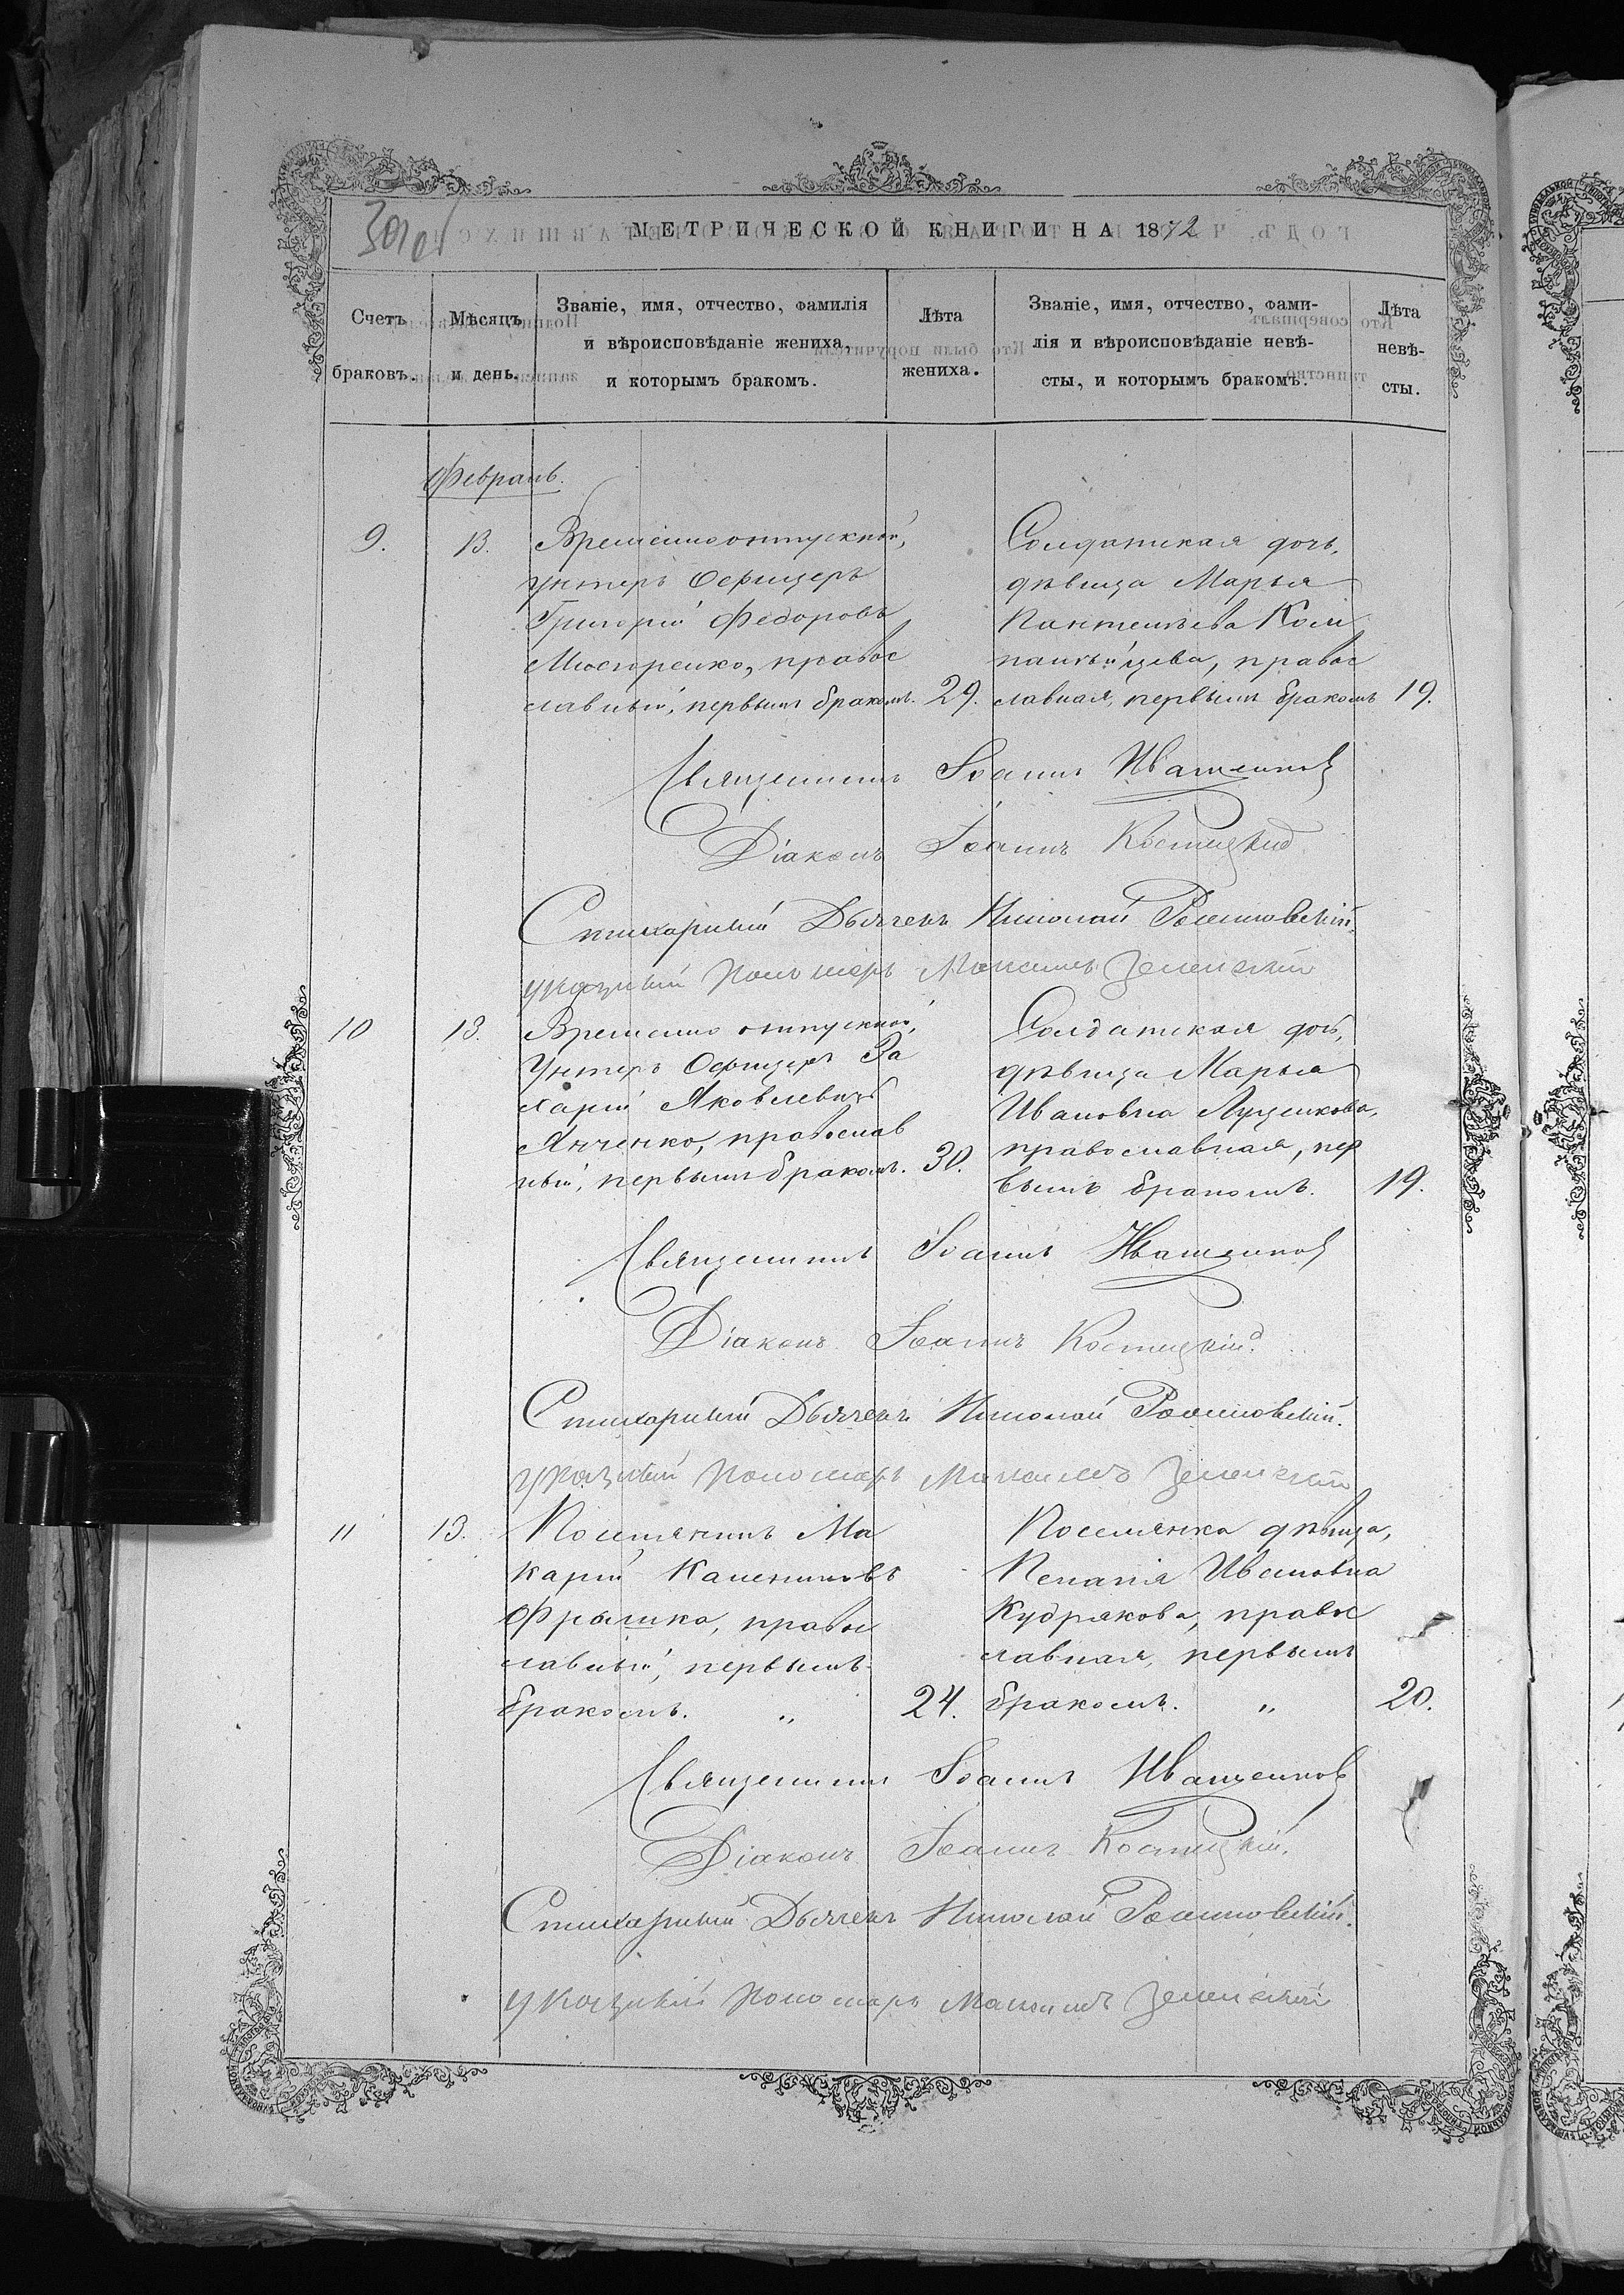 МЕТРИЧЕСКОЙ КНИГИ НА 1872
Счетъ браковъ.
Мѣсяцъ и день.
Званіе, имя, отчество, фамилія
и вѣроисповѣданіе жениха,
и которымъ бракомъ.
Лѣта
жениха.
Званіе, имя, отчество, фами-
лія и вѣроисповѣданіе невѣ-
сты, и которымъ бракомъ.
Лѣта
невѣ-
сты.
Февраль.
9. 13. Временно отпускной,
унтеръ Офицеръ
Григорій Федоровъ
правос
лавный, первымъ бракомъ. 29.
Солдатская дочь,
дѣвица Марья
Пантелѣева Ком
панѣйцева, правос
лавная, первымъ бракомъ 19.
Священникъ Іоаннъ Иващенков
Діаконъ Іоаннъ Костицкій
Стихарный Дьячекъ Николай
указный Пономарь Максимъ Зеленскій
10 13. Временно отпускной,
Унтеръ Офицеръ За
харій Яковлевичъ
Янченко, православ
ный, первымъ бракомъ. 30.
Солдатская дочь,
дѣвица Марья
Ивановна Луценкова,
православная, пер
вымъ бракомъ. 19.
Священникъ Іоаннъ Иващенков
Діаконъ Іоаннъ Костицкій.
Стихарный Дьячекъ Николай
указный Пономарь Максимъ Зеленскій
11 13. Поселянинъ Ма
карій Калениковъ
Фрышко, правос
лавный, первымъ
бракомъ. „ 24.
Поселянка дѣвица,
Пелагія Ивановна
Кудрякова, правос
лавная, первымъ
бракомъ. „ 20.
Священникъ Іоаннъ Иващенков
Діаконъ Іоаннъ Костицкій.
Стихарный Дьячекъ Николай
указный Пономарь Максимъ Зеленскій